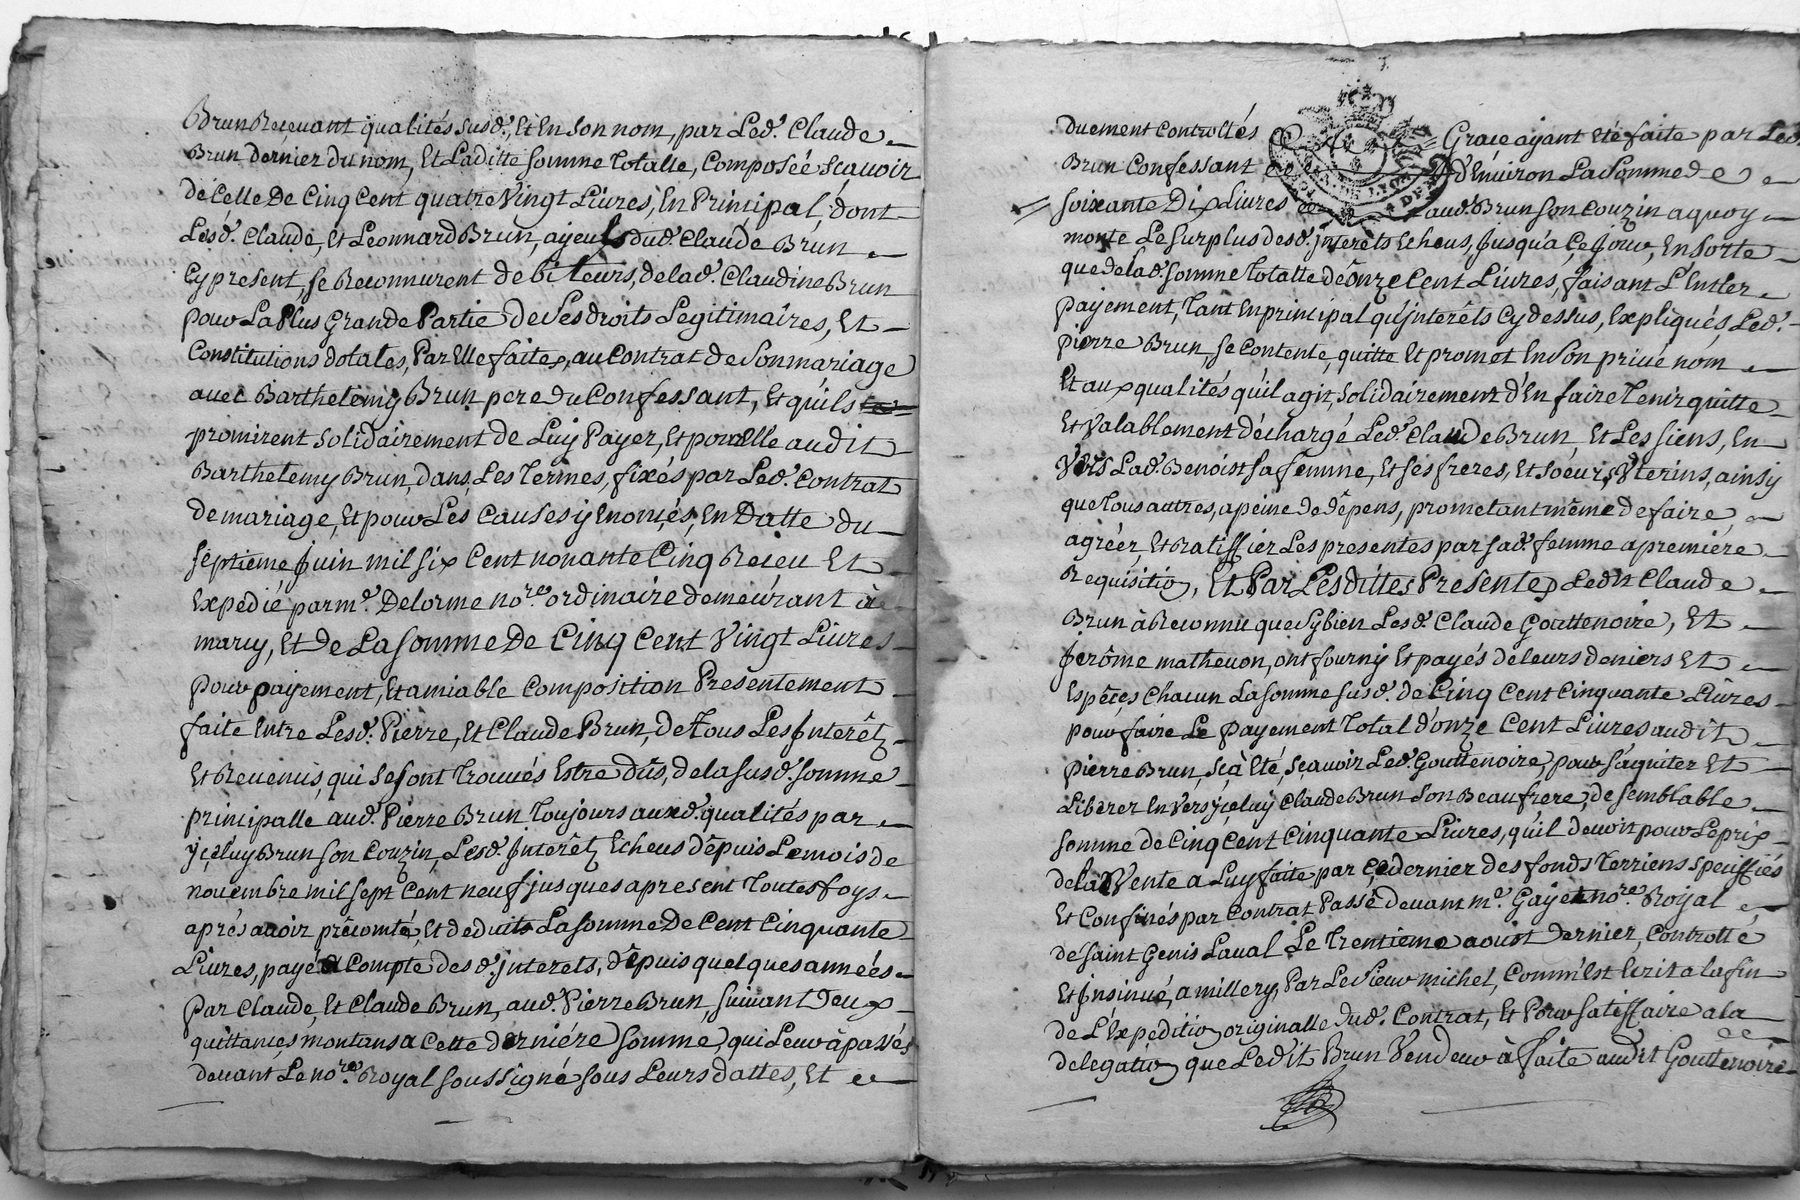 Brun Recevant qualités susd., Et En son nom, par Led. Claude
Brun dernier du nom, Et Laditte somme totalle, Composée sçavoir
de Celle De Cinq Cent quatre Vingt Livres, En Principal, dont
Lesd. Claude, Et Leonnard Brun, ayeuls dud. Claude Brun
Cy present, se Reconnurent debiteurs, de lad. Claudine Brun
pour La Plus Grande Partie De Ses droits Legitimaires, Et
Constitutions dotales, Par Elle faites, au Contrat de Son mariage
avec Barthelemy Brun pere du Confessant, Et qu'ils
promirent solidairement de Luy Payer, Et pour Elle audit
Barthelemy Brun, dans Les termes, fixés par Led. Contrat
De mariage, Et pour Les Causes y Enoncés, En Datte du
septieme Juin mil six Cent nonante Cinq Receu Et
Expedié par me. Delorme nore. ordinaire demeurant à
marcy, Et de La somme De Cinq Cent Vingt Livres
pour payement, Et amiable Composition Presentement
faite Entre Lesd. Pierre, Et Claude Brun, De tous Les Interêts
Et Revenus, qui se sont trouvés Estre dûs, de la susd. somme
principalle aud. Pierre Brun toujours auxd. qualités par
yçeluy Brun son Couzin, Lesd. Interêts Echeus dêpuis Le mois de
novembre mil sept Cent neuf jusques apresent toutes foys
aprés avoir prêcomté, Et deduits La somme De Cent Cinquante
Livres, payé a Compte desd. Interets, dêpuis quelques années
Par Claude, Et Claude Brun, aud. Pierre Brun, suivant Deux
quittances montans a Cette derniére somme qui Leur à passés
devant Le nore. Royal soussigné sous Leurs dattes, Et
duement Controllés Grace ayant Eté faite par Led.
Brun Confessant d'Environ La Somme de
soixante Dix Livres aud. Brun son Couzin a quoy
monte Le surplus desd. Interêts Echeus, Jusqu'a Ce Jour, En sorte
que de lad. somme totalle de Onze Cent Livres, faisant L'Entier
Payement, tant En principal qu'Interêts Cy dessus, Expliqués, Led.
pierre Brun, se Contente, quitte Et promet En Son privé nom
Et aux qualités qu'il agit, solidairement d'En faire tenir quitte
Et Valablement déchargé Led. Claude Brun Et Les siens, En
Vers Lad. Benoist sa femme, Et ses freres, Et soeurs Vterins, ainsy
que tous auttres, a peine de dêpens, prometant même de faire,
agréer, Et Ratiffier Les presentes par sad. femme a premiére
Requisition, Et Par Lesdittes Presentes Ledit Claude
Brun à Reconnu que sy bien Lesd. Claude Gouttenoire, Et
Jerôme mathevon, ont fourny Et payés de leurs deniers Et
Espéçes Chacun La somme susd. de Cinq Cent Cinquante Livres
pour faire Le Payement total d'onze Cent Livres audit
Pierre Brun, s'çà Eté, sçavoir Led. Gouttenoire, pour s'aquiter Et
Liberer En Vers yçeluy Claude Brun Son Beaufrere, de semblable
somme de Cinq Cent Cinquante Livres, qu'il devoit pour Le prix
de la Vente a Luy faite par Ce dernier des fonds terriens speciffiés
Et Confinés par Contrat Passé devant me. Gayet nore. Royal
de saint Genis Laval Le trentieme aoust Dernier, Controllé
Et Insinué, a millery, Par Le sieur michel, Comm'Est Ecrit a la fin
de L'Expedition originalle dud. Contrat, Et Pour satisfaire a la
delegation que Ledit Brun Vendeur à faite audit Gouttenoire